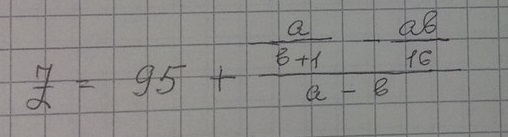 Z = 95 + (a/(b+1) - ab/16)/(a - b)